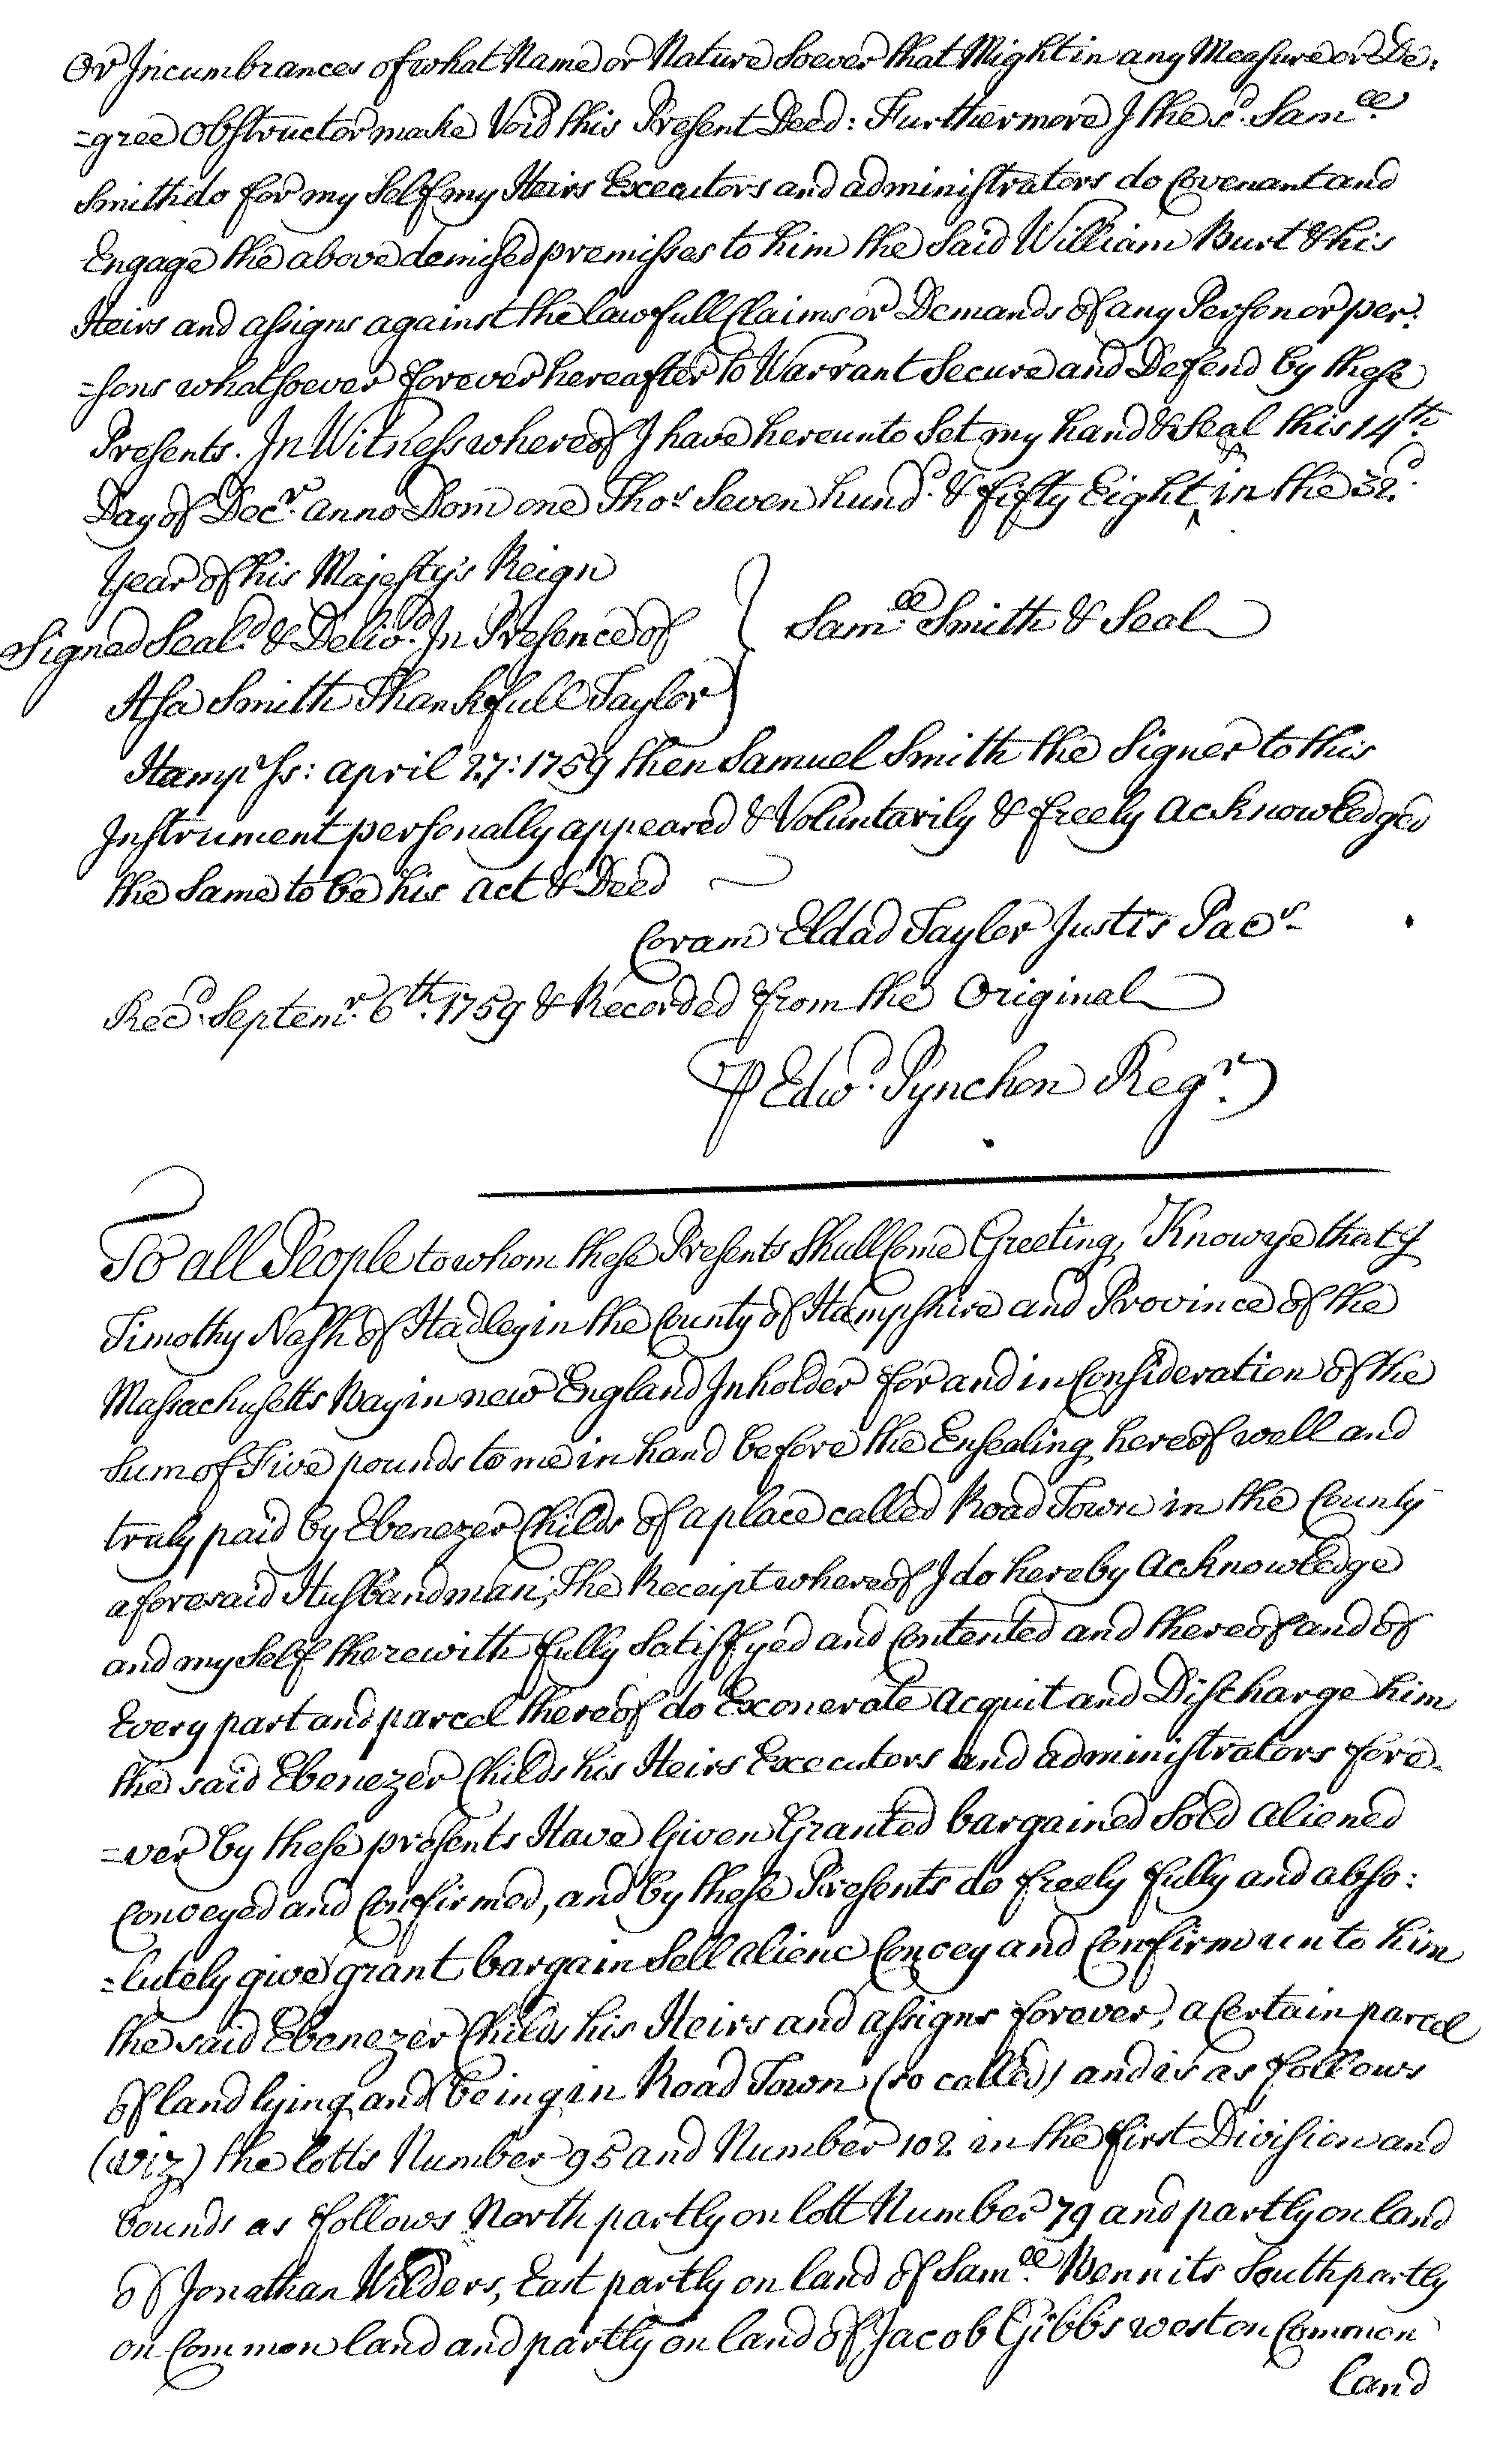 Or Incumbrances of what Name or Nature Soever that Might in any Measure or De:
=gree Obstruct or make Void this Present Deed: Furthermore I the sd. Samll.
Smith do for my Self my Heirs Executors and administrators do Covenant and
Engage the above demised premisses to him the Said William Burt & his
Heirs and assigns against the lawfull Claims or Demands of any Person or per:
=sons whatsoever forever hereafter to Warrant Secure and Defend by these
Presents. In Witness whereof I have hereunto Set my hand & Seal this 14th.
Day of Decr. anno Dom one Thos. Seven hund. & fifty Eight, in the 32d.
Year of his Majesty's Reign
Signed Seald. & Delivd. In Presence of } Samll. Smith & Seal
Asa Smith Thankfull Taylor
Hampr Ss: april 27: 1759 then Samuel Smith the Signer to this
Instrument personally appeared & Voluntarily & freely acknowledged
the Same to be his act & Deed
Coram Eldad Taylor Justis Pacs.
Recd. Septemr. 6th. 1759 & Recorded from the Original
P Edwd. Pynchon Regr.
To all People to whom these Presents Shall Come Greeting, Know ye that I
Timothy Nash of Hadley in the County of Hampshire and Province of the
Massachusetts Bay in new England Inholder for and in Consideration of the
Sum of Five pounds to me in hand before the Ensealing hereof well and
truly paid by Ebenezer Childs of a place called Road Town in the County
aforesaid Husbandman; The Receipt whereof I do hereby acknowledge
and my Self therewith fully Satisfyed and Contented and thereof and of
Every part and parcel thereof do Exonerate acquit and Discharge him
the said Ebenezer Childs his Heirs Executors and administrators fore-
=ver by these presents Have Given Granted bargained Sold aliened
Conveyed and Confirmed, and by these Presents do freely fully and abso:
=lutely give grant bargain Sell aliene Convey and Confirm unto him
the said Ebenezer Childs his Heirs and assigns forever, a Certain parcel
of land lying and being in Road Town (so called) and is as follows
(viz) the lotts Number 95 and Number 102 in the first Division and
bounds as follows North partly on lott Number 79 and partly on land
of Jonathan Wilders, East partly on land of Samll. Bennits South partly
on Common land and partly on land of Jacob Gibbs west on Common
land